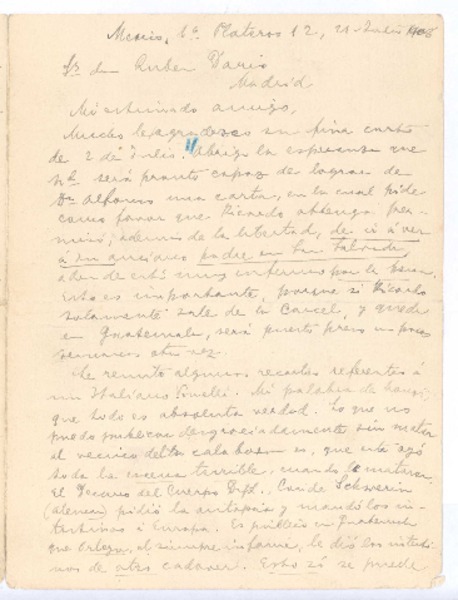 Mexico, 1ª Plateros 12, 21 Julio 1908
Sr. don Ruben Dario
Madrid
Mi estimado amigo,
Mucho le agradezco su fina carta
de 2 de Julio. Abrigo la esperanza que
Ud. será pronto capaz de lograr de
Dn Alfonso una carta, en la cual pide
como favor que Ricardo obtenga per-
miso, además de la libertad, de ir á ver
á su anciano padre en San Salvador,
adonde está muy enfermo por la pena.
Esto es importante, porque si Ricardo
solamente sale de la Carcel, y queda
en Guatemala, será puesto preso en pocas
semanas otra vez.
Le remito algunos recortes referentes á
un Italiano. Mi palabra de honor,
que todo es absoluta verdad. Lo que no
puedo publicar desgraciadamente sin matar
al vecino del calabozo es, que este oyó
toda la escena terrible, cuando le mataron.
El Decano del Cuerpo Dipl., Conde Schwerin
(aleman) pidió la autopsia y mandó los in-
testinos á Europa. Es público en Guatemala
que Ortega, el siempre infame, le dió los intesti-
nos de otro cadaver. Esto sí se puede